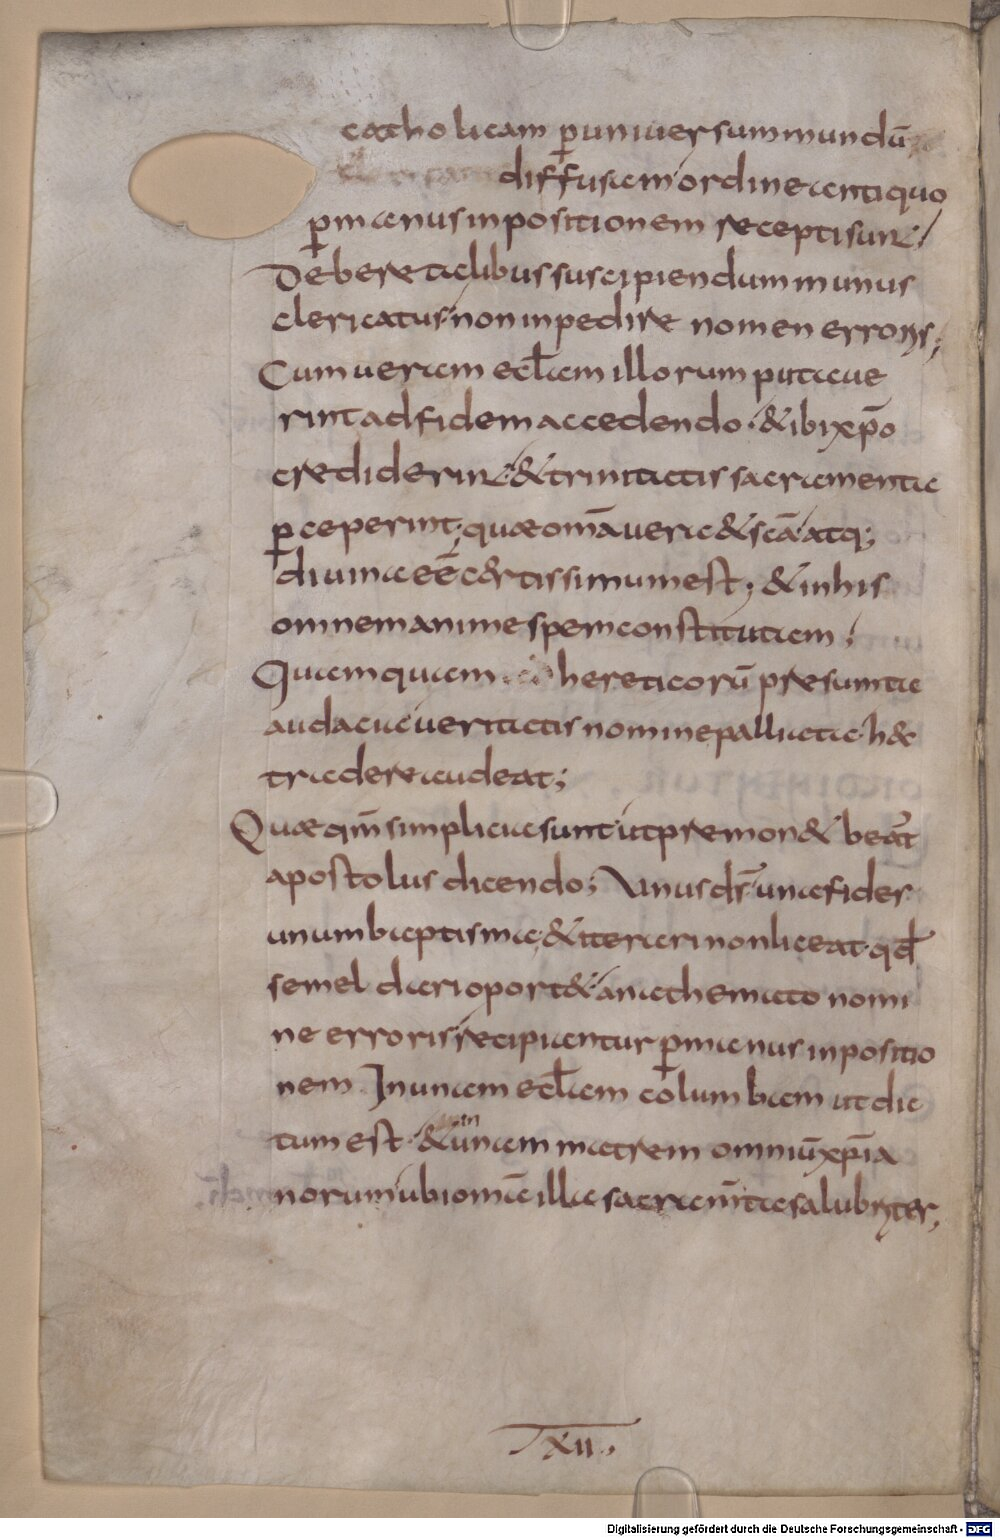 catholicam ꝑuniuersummundū
diffusam ordineantiquo
ꝑmanusinpositionem receptisunt;
Debere talibus suscipiendummunus
clericatus non inpedire nomen erroris;
Cum ueram eccłam illorum putaue
rint adfidem accedendo · & ibi xp̄o
crediderint · & trinitatis sacramenta
ꝑceperint; quae om̄a uera & sc̄a atq;
diuina eē c&rtissimum est; & inhis
omnem anime spem constitutam;
Quamquam hereticorū presumta
audacia ueritatis nomine palliata h&
tradere audeat;
Quae qm̄ simplicia sunt ut premon& beat̄
apostolus dicendo; Unus dn̄s una fides
unum baptisma · & iterari non liceat · qd̄
semel dari oport& anathemato nomi
ne erroris recipiantur ꝑmanus inpositio
nem Inunam eccłam columbam ut dic
tum est · & in unam matrem omniū xp̄ia
norum ubi om̄a illa sacram̄ta salubriter,
XII.
Digitalisierung gefördert durch die Deutsche Forschungsgemeinschaft - DFG